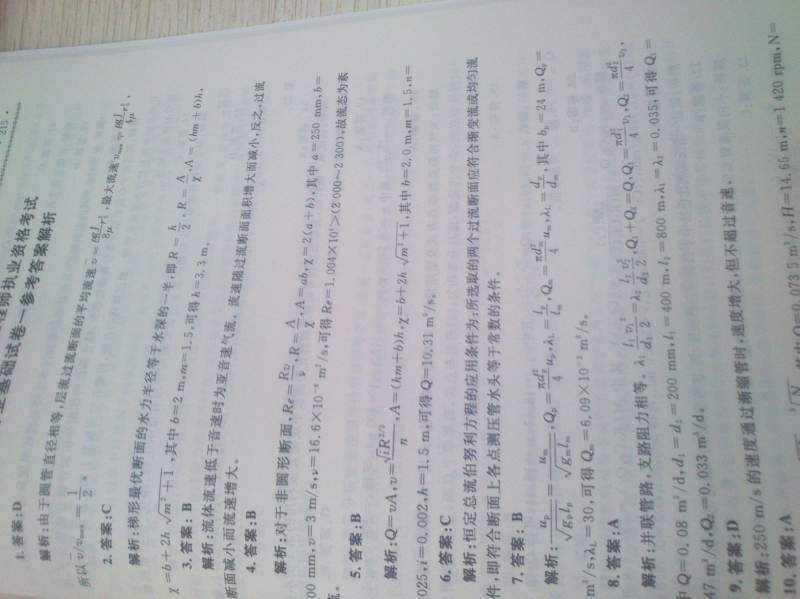 · 215 ·
程师执业资格考试
业基础试卷一参考答案解析
1. 答案:D
解析:由于圆管直径相等,层流过流断面的平均流速 v=ρgJ/8μ r₀²,最大流速 vmax=ρgJ/4μ r₀²,
所以 v/vmax=1/2。
2. 答案:C
解析:梯形最优断面的水力半径等于水深的一半,即 R=h/2,R=A/χ,A=(hm+b)h,
χ=b+2h√m²+1,其中 b=2 m,m=1.5,可得 h=3.3 m。
3. 答案:B
解析:流体流速低于音速时为亚音速气流。流速随过流断面面积增大而减小,反之,过流
断面减小而流速增大。
4. 答案:B
解析:对于非圆形断面,Re=Rv/ν,R=A/χ,A=ab,χ=2(a+b),其中 a=250 mm,b=
00 mm,v=3 m/s,ν=16.6×10⁻⁶ m²/s,可得 Re=1.004×10⁴>(2 000~2 300),故流态为紊
流。
5. 答案:B
解析:Q=vA,v=√iR^{2/3}/n,A=(hm+b)h,χ=b+2h√m²+1,其中 b=2.0 m,m=1.5,n=
025,i=0.002,h=1.5 m,可得 Q=10.31 m³/s。
6. 答案:C
解析:恒定总流伯努利方程的应用条件为:所选取的两个过流断面应符合渐变流或均匀流
件,即符合断面上各点测压管水头等于常数的条件。
7. 答案:B
解析:up/√gplp=um/√gmlm,Qp=πdp²/4 up,λl=lp/lm,Qm=πdm²/4 um,λl=dp/dm,其中 bp=24 m,Qp=
m³/s,λL=30,可得 Qm=6.09×10⁻² m³/s。
8. 答案:A
解析:并联管路,支路阻力相等。λ₁ l₁/d₁ v₁²/2=λ₂ l₂/d₂ v₂²/2,Q₁+Q₂=Q,Q₁=πd₁²/4 v₁,Q₂=πd₂²/4 v₂,
中 Q=0.08 m³/d,d₁=d₂=200 mm,l₁=400 m,l₂=800 m,λ₁=λ₂=0.035,可得 Q₁=
47 m³/d,Q₂=0.033 m³/d。
9. 答案:D
解析:250 m/s 的速度通过渐缩管时,速度增大,但不超过音速。
10. 答案:A
Q=0.073 5 m³/s,H=14.65 m,n=1 420 rpm,N=